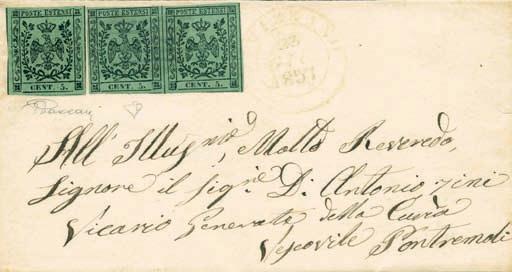 POSTE ESTENSI POSTE ESTENSI POSTE ESTENSI
CENT. 5. CENT. 5. CENT. 5.
1857
All' Illus.mo, Molto Reveredo,
Signore il sigr. D: Antonio Zini
Vicario Generale della Curia
Vescovile Pontremoli